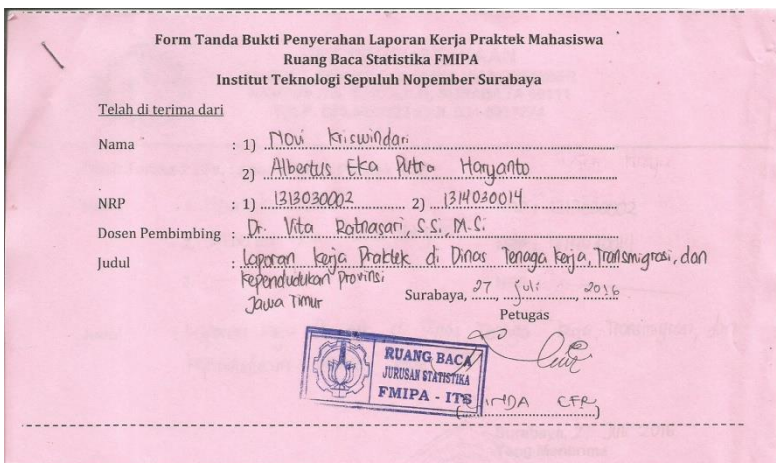 Form Tanda Bukti Penyerahan Laporan Kerja Praktek Mahasiswa
Ruang Baca Statistika FMIPA
Institut Teknologi Sepuluh Nopember Surabaya
Telah di terima dari
Nama : 1) Novi Kriswindari
2) Albertus Eka Putra Haryanto
NRP : 1) 1313030002 2) 1314030014
Dosen Pembimbing : Dr. Vita Ratnasari, S.Si, M.Si
Judul : Laporan Kerja Praktek di Dinas Tenaga Kerja, Transmigrasi, dan
Kependudukan Provinsi
Jawa Timur
Surabaya, 27 Juli 2016
Petugas
RUANG BACA
JURUSAN STATISTIKA
FMIPA - ITS
CFR